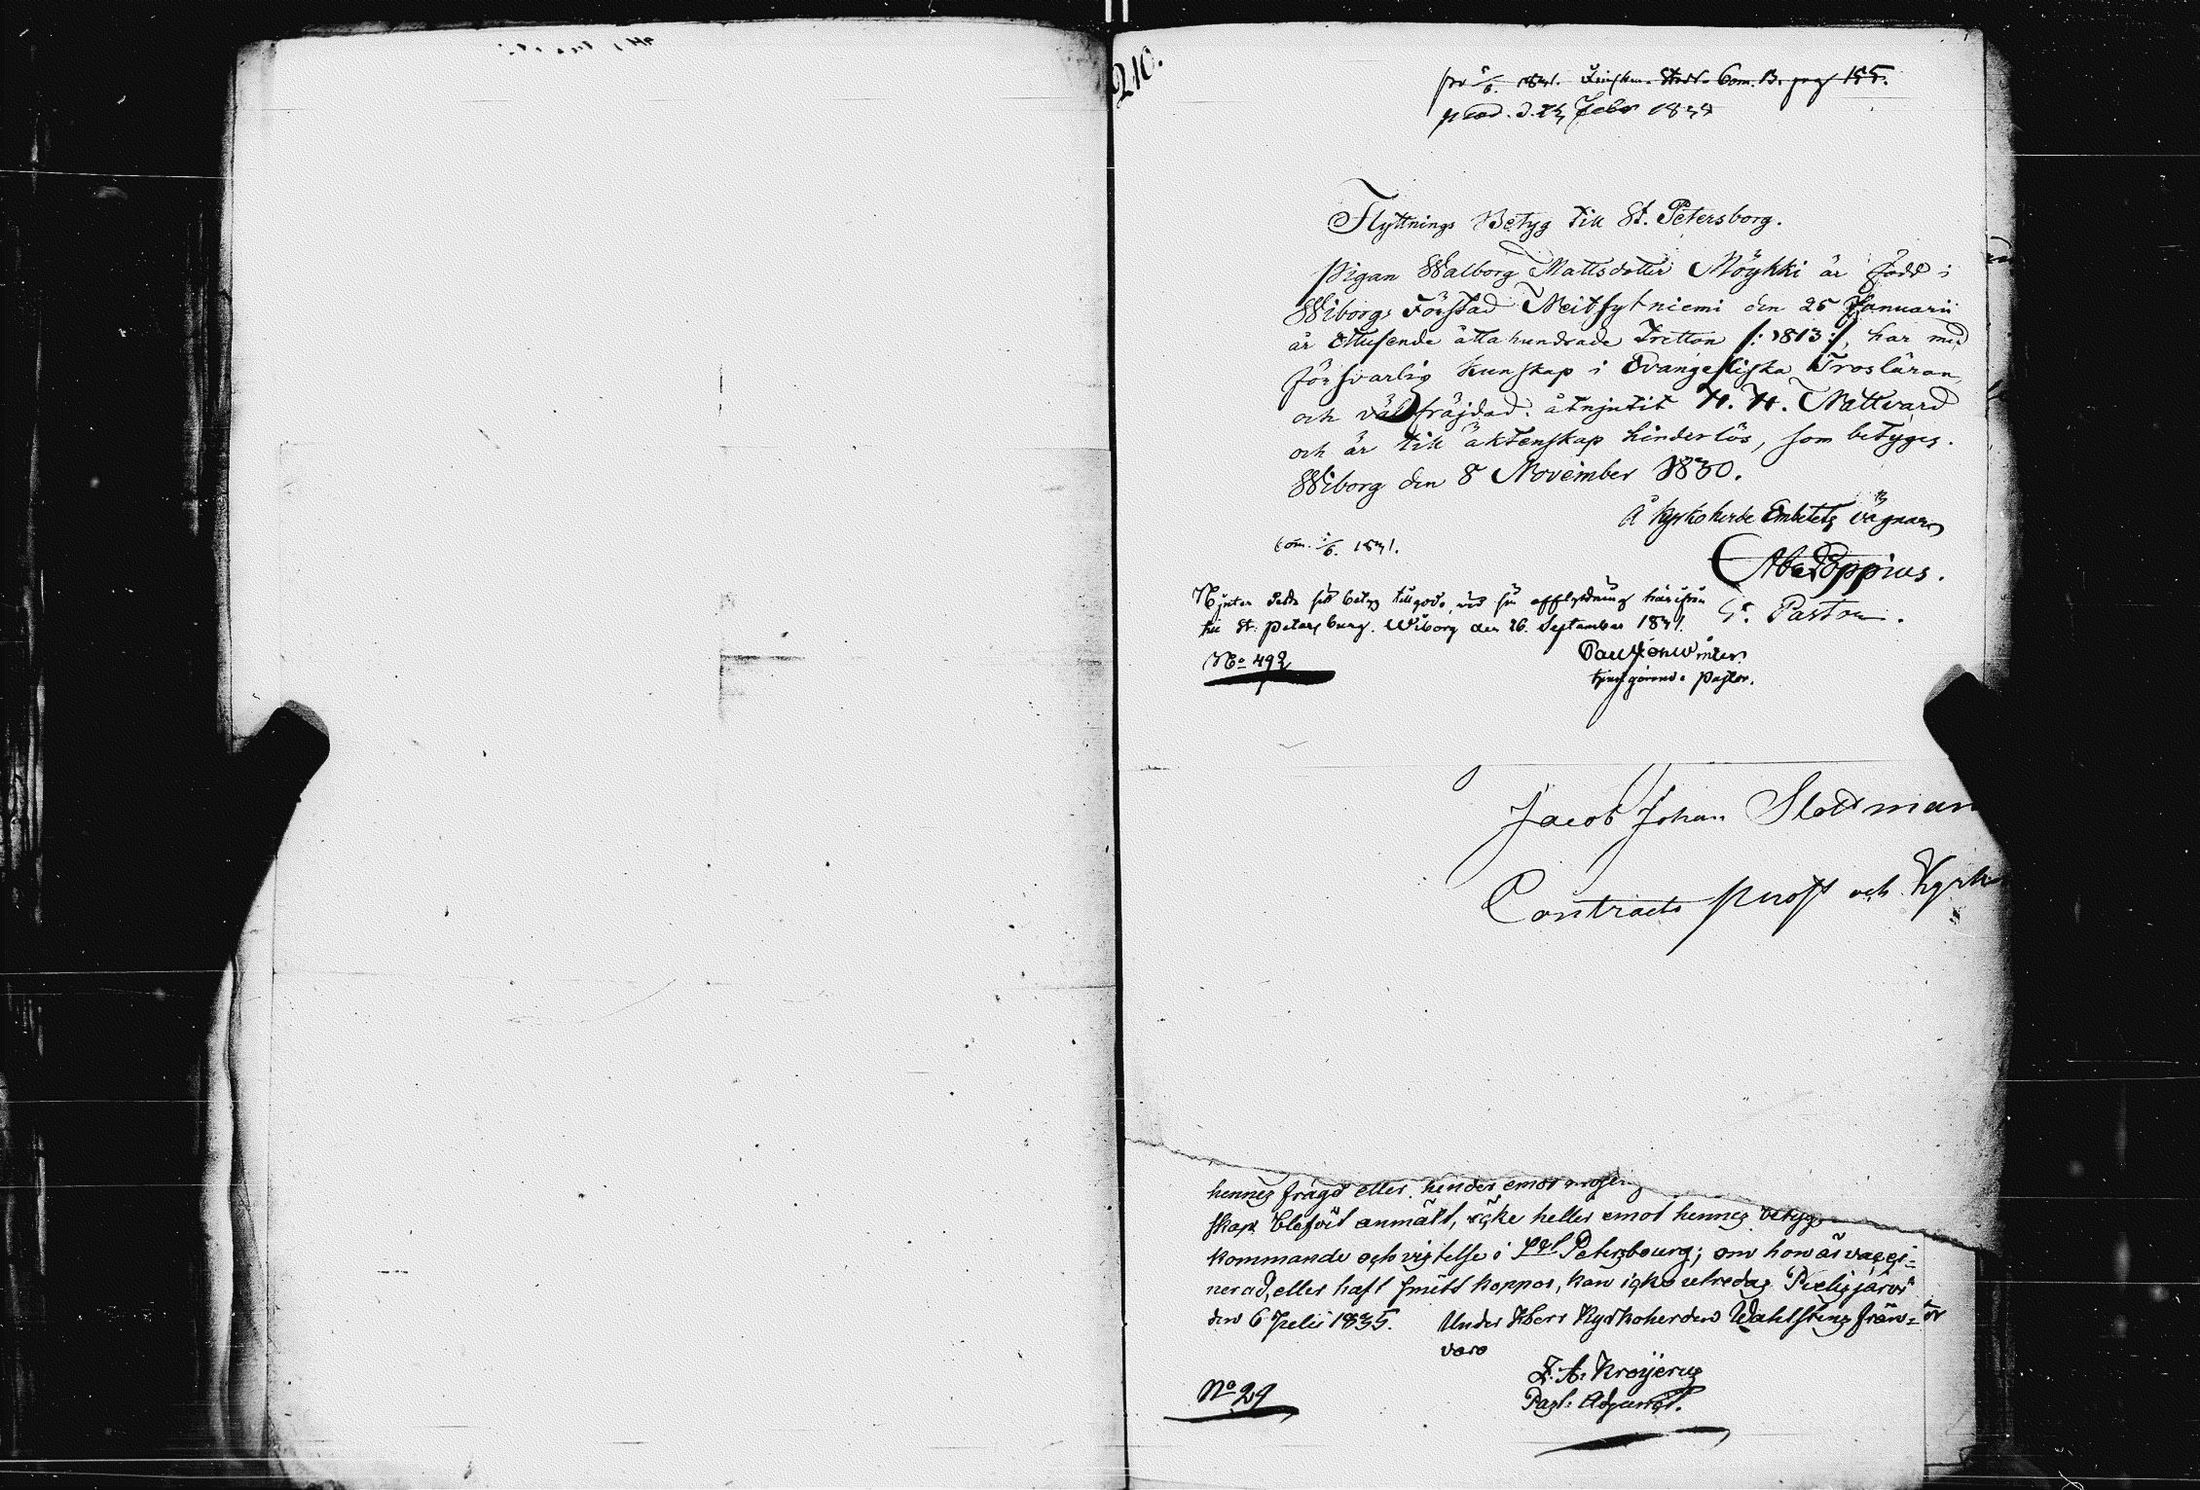 210.
1831. Com. B. pag 155.
d. 23 Febr 1834
Flyttnings Betyg till St. Petersborg.
Pigan Walborg Mattsdotter Möykki är född i
Wiborgs Förstad Neitsytniemi den 25 Januarii
år ettusende åtta hundrade Tretton /: 1813 :/, har med
försvarlig kunskap i Evangeliska Trosläran,
och väl fräjdad. åtnjutit H. H. Nattvard
och är till äktenskap hinderlös, som betyges.
Wiborg den 8 November 1830.
Å Kyrkoherde Embetets vägnar
Poppius.
Pastor.
Com. 1831.
Njuter detta sitt betyg tillgodo, vid sin afflyttning härifrån
till St. Petersburg. Wiborg den 26. September 1831.
No 492
tjenstgörande Pastor.
Jacob Johan
Contracts Prost och Kyrk
hennes frägd eller hinder emot
skap blefvit anmält, icke heller emot hennes
kommande och vistelse i St Petersbourg; om hon är vacci=
nerad, eller haft smitt koppor, kan icke utredas Pielisjärvi
den 6 Julii 1835. Under Herr Kyrkoherden Wahlstens från=
varo
No 29
Past. Adjunct.